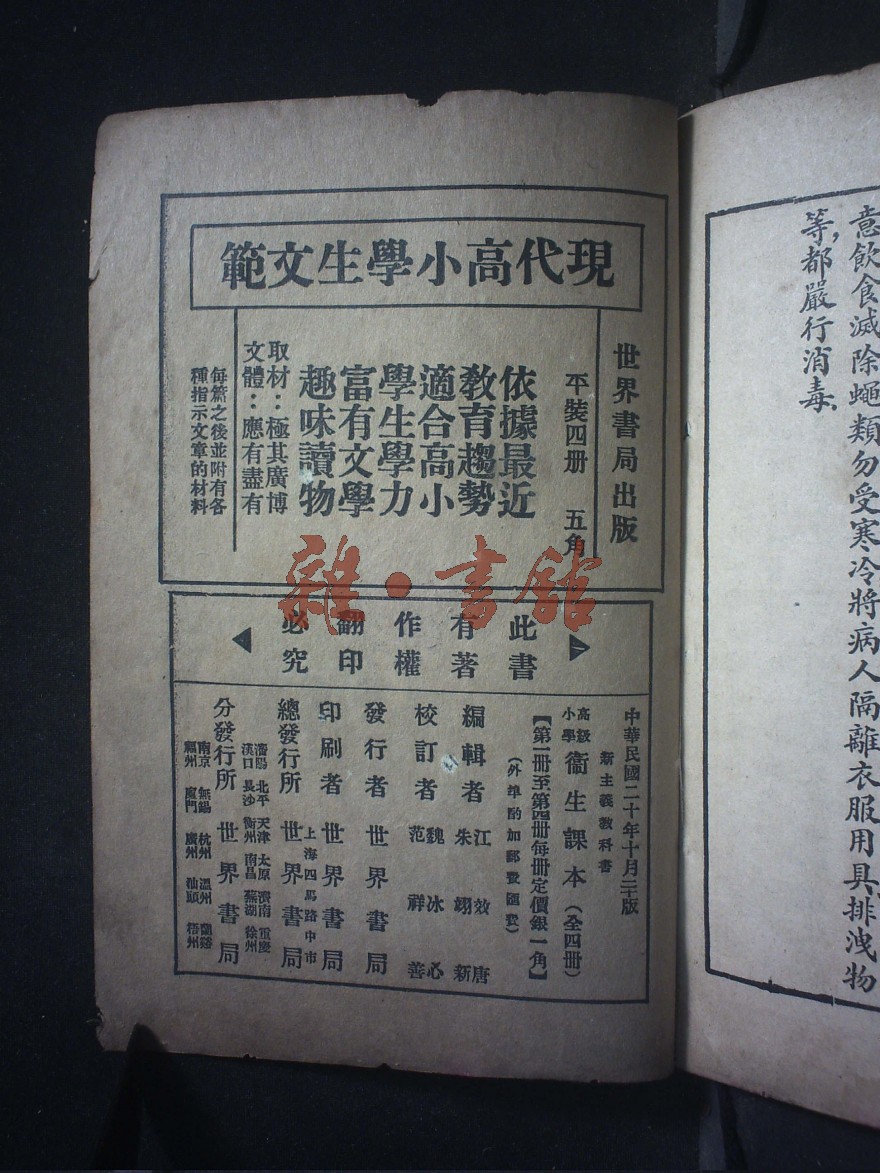 意飲食滅除蠅類勿受寒冷將病人隔離衣服用具排洩物
等，都嚴行消毒，
現代高小學生文範
世界書局出版
平裝四册　五角
依據最近
教育趨勢
適合高小
學生學力
富有文學
趣味讀物
取材：極其廣博
文體：應有盡有
每篇之後並附有各
種指示文章的材料
此書
有著
作權
翻印
必究
中華民國二十年十月三十版
新主義教科書
高級小學 衞生課本（全四册）
【第一册至第四册每册定價銀一角】
（外埠酌加郵費匯費）
編輯者　江效唐　朱翊新
校訂者　魏冰心　范祥善
發行者　世界書局
印刷者　世界書局
上海四馬路中市
總發行所　世界書局
瀋陽　北平　天津　太原　濟南　重慶
漢口　長沙　衡州　南昌　蕪湖　徐州
分發行所　世界書局
南京　無錫　杭州　溫州　蘭谿
福州　廈門　廣州　汕頭　梧州
雜·書館